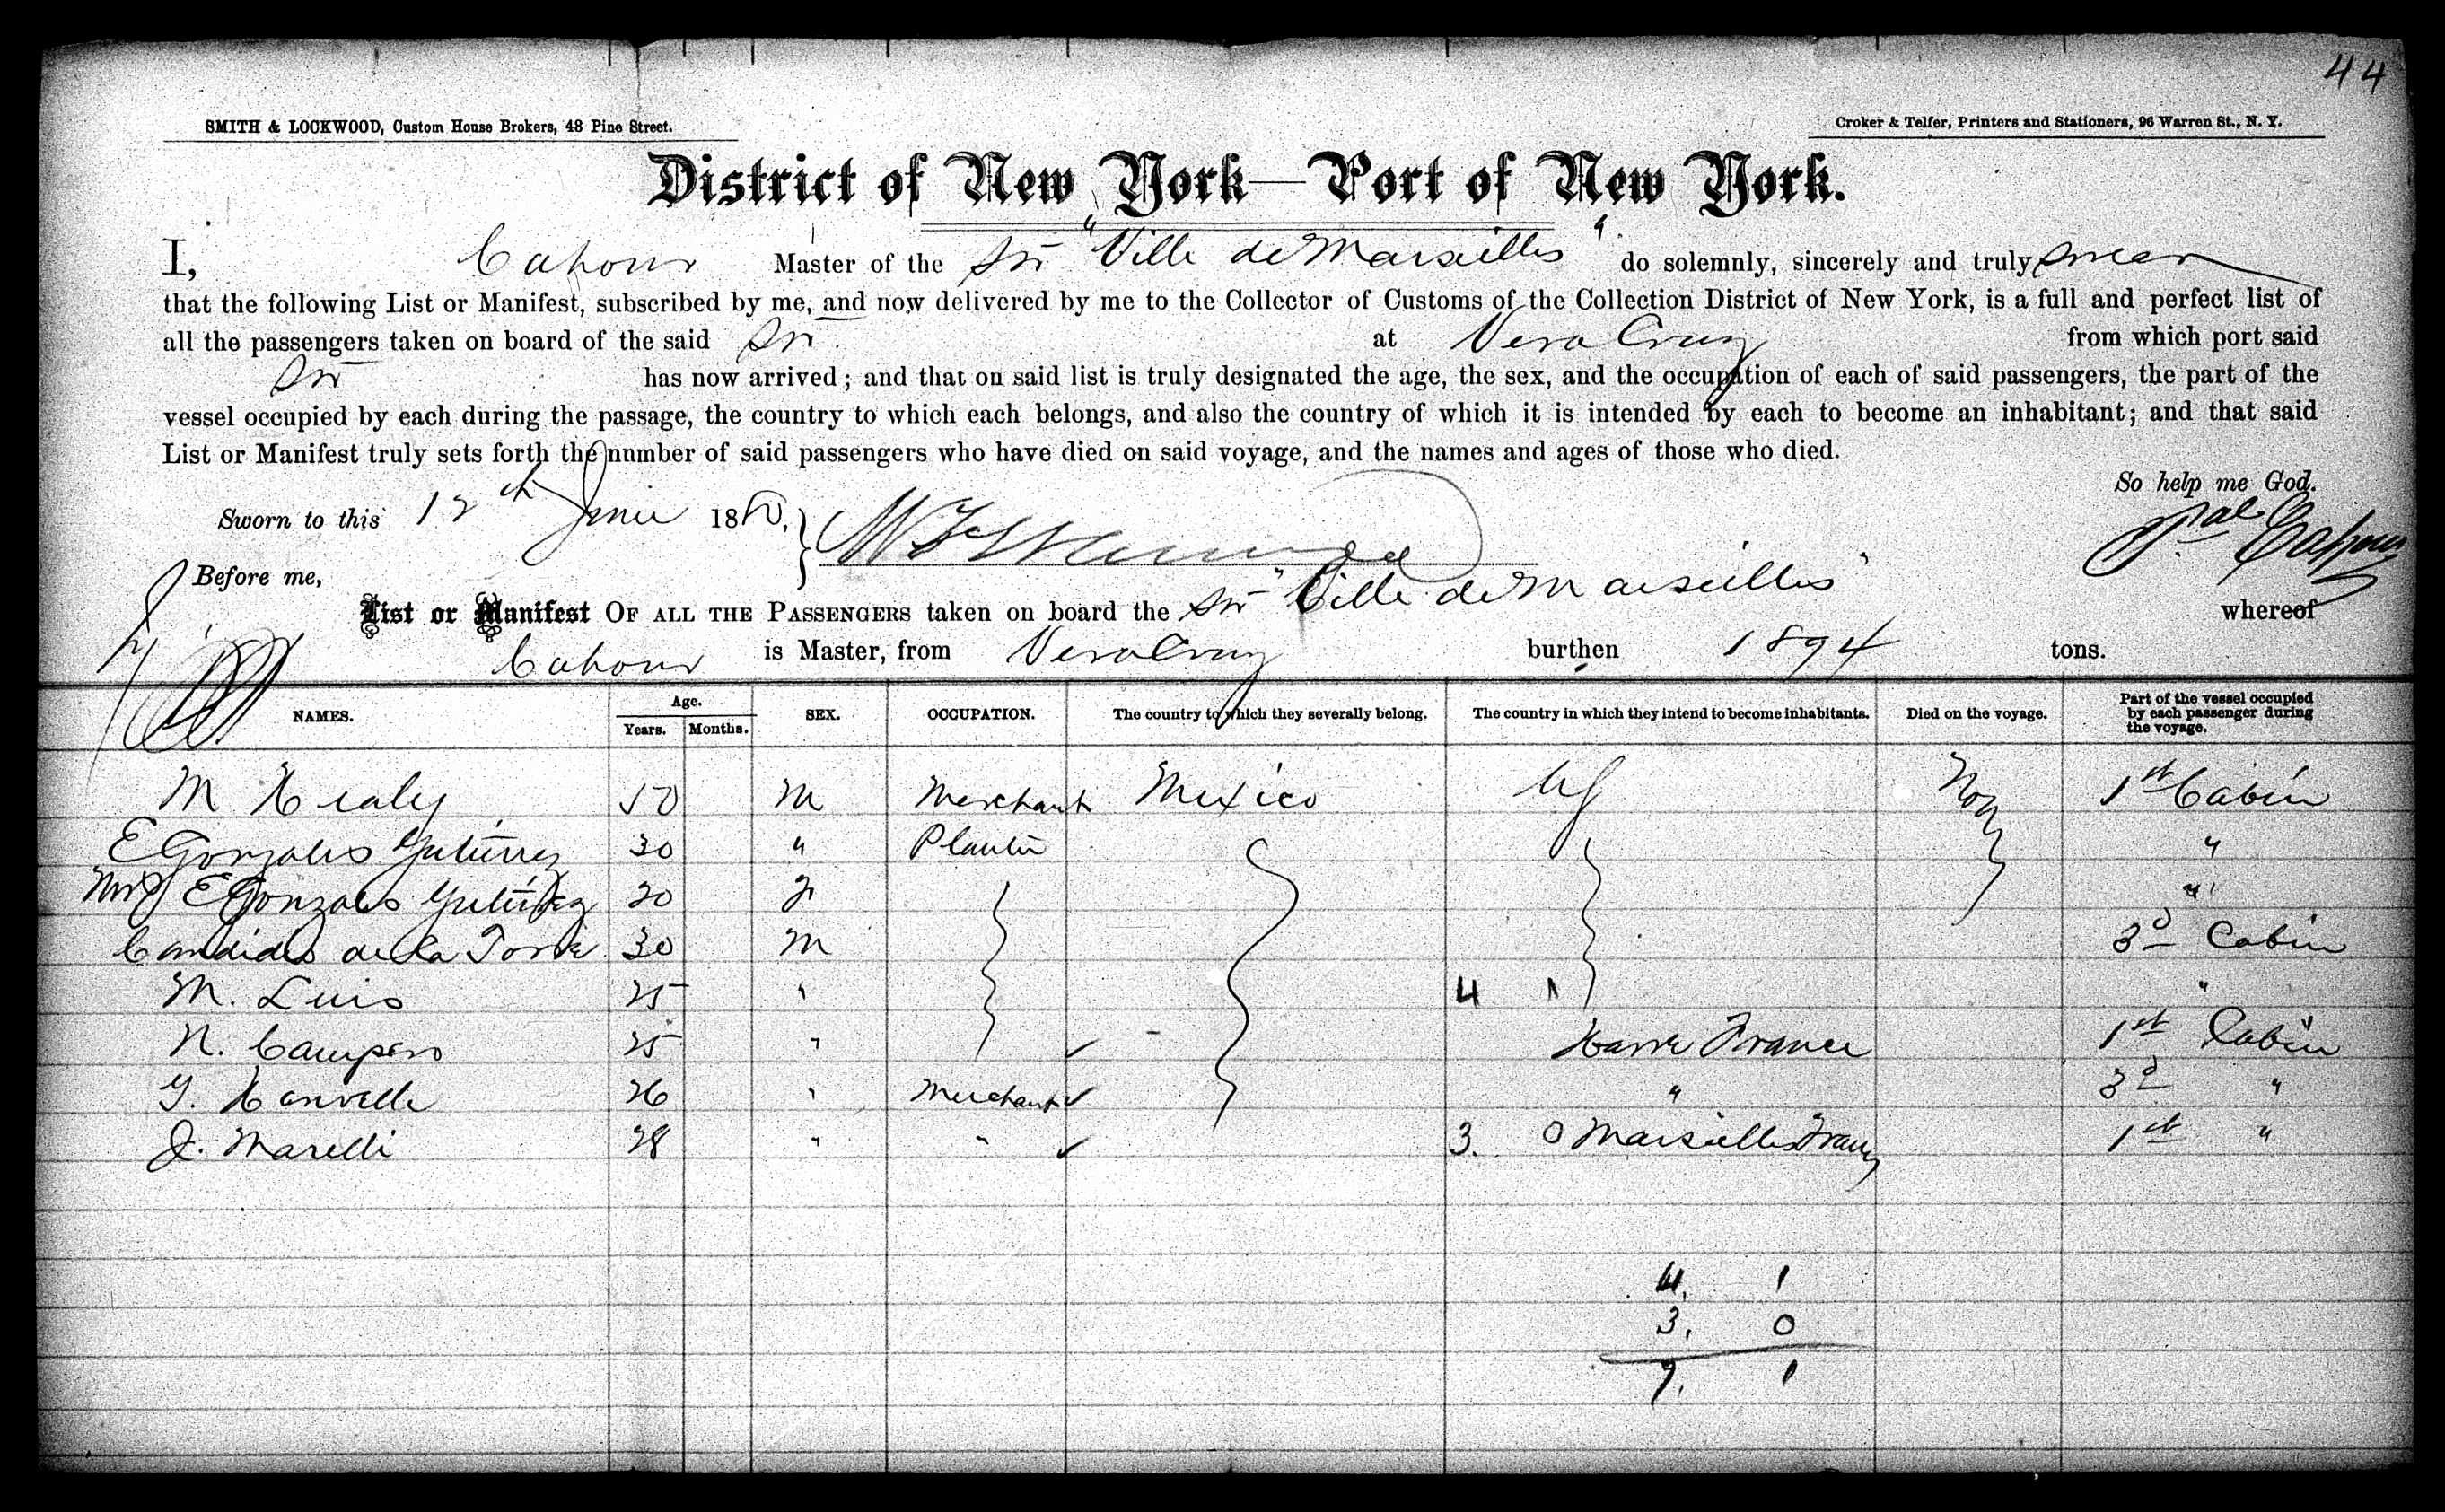 44
SMITH & LOCKWOOD, Custom House Brokers, 48 Pine Street.
Croker & Telfer, Printers and Stationers, 96 Warren St., N. Y.
District of New York—Port of New York.
I, Cahour Master of the Str "Ville de Marseilles" do solemnly, sincerely and truly swear
that the following List or Manifest, subscribed by me, and now delivered by me to the Collector of Customs of the Collection District of New York, is a full and perfect list of
all the passengers taken on board of the said Str. at Vera Cruz from which port said
Str has now arrived; and that on said list is truly designated the age, the sex, and the occupation of each of said passengers, the part of the
vessel occupied by each during the passage, the country to which each belongs, and also the country of which it is intended by each to become an inhabitant; and that said
List or Manifest truly sets forth the nnmber of said passengers who have died on said voyage, and the names and ages of those who died.
So help me God.
Sworn to this 12th June 1880,
Cahour
Before me,
List or Manifest OF ALL THE PASSENGERS taken on board the Str "Ville de Marseilles" whereof
Cahour is Master, from Vera Cruz burthen 1894 tons.
NAMES. Age. Years. Months. SEX. OCCUPATION. The country to which they severally belong. The country in which they intend to become inhabitants. Died on the voyage. Part of the vessel occupied by each passenger during the voyage.
M Healy 50 M Merchant Mexico US None 1st Cabin
E Gonzales Gutierrez 30 " Planter "
Mrs E Gonzales Gutierrez 20 F "
Candido de la Torre 30 M 3d Cabin
M. Luis 25 " 4 1 "
N. Campero 25 " Havre France 1st Cabin
26 " Merchant " 3d "
J. Marelli 28 " " 3. 0 Marseilles France 1st "
4. 1
3. 0
7. 1